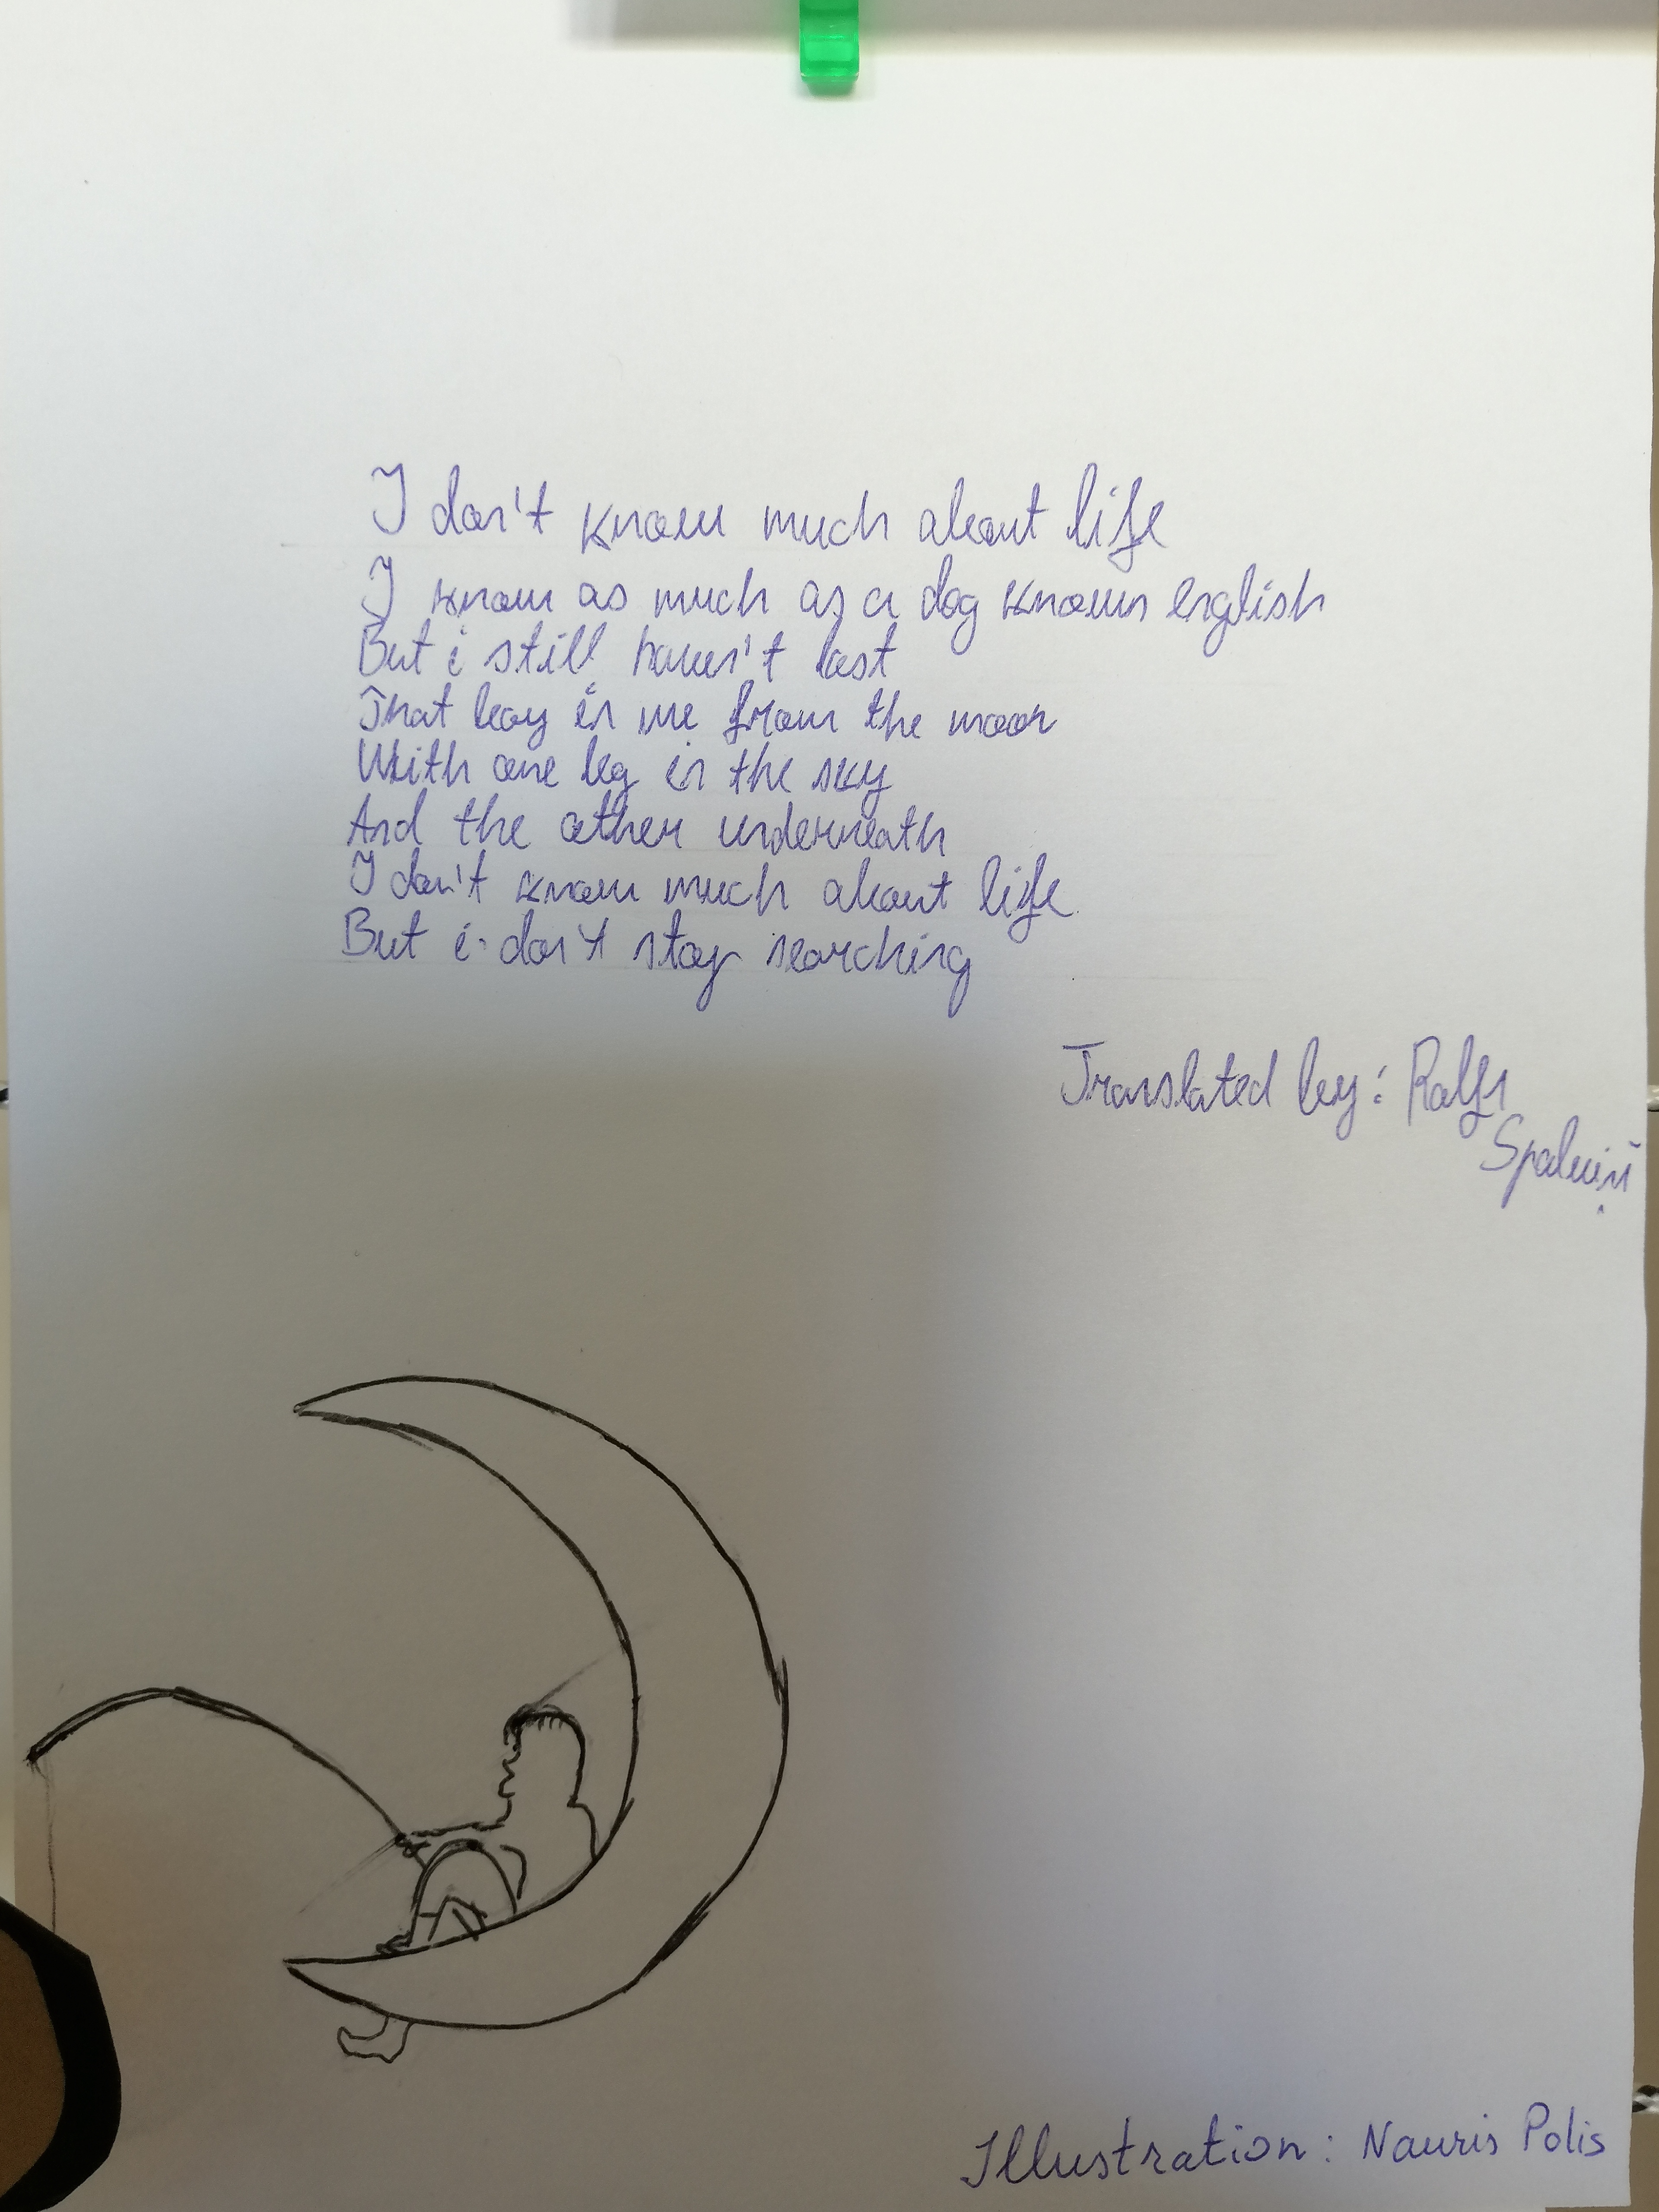 I don't know much about life
I know as much as a dog knows english
But i still haven't lost
That boy in me from the moon
With one leg in the sky
And the other underneath
I don't know much about life
But i don't stop searching
Translated by: Ralfs
Illustration: Nauris Polis